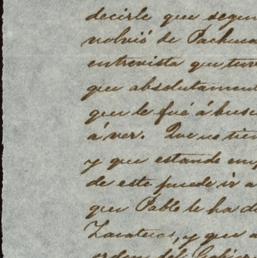 decirle que segun
volvió de Pachuca
entrevista que tuv
que absolutament
que le fué á busc
á ver. Que no tien
y que estando emp
de este puede ir a
que Pablo le ha d
Zacatecas, y que a
orden del Gobier